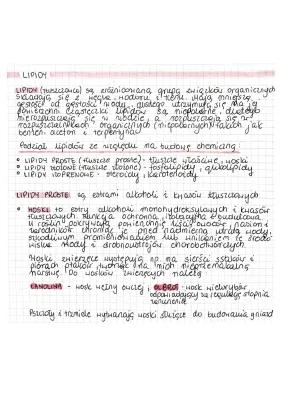 LIPIDY
LIPIDY (tłuszczowce) są zróżnicowaną grupą związków organicznych
składają się z węgla, wodoru i tlenu. Mają mniejszą
gęstość od gęstości wody, dlatego utrzymują się na jej
powierzchni. Cząsteczki lipidów są niepolarne, dlatego
nierozpuszczają się w wodzie, a rozpuszczają się w
rozpuszczalnikach organicznych (niepolarnych) takich jak
benzen, aceton i terpentyna
Podział lipidów ze względu na budowę chemiczną:
• LIPIDY PROSTE (tłuszcze proste) - tłuszcze właściwe, woski
• LIPIDY ZŁOŻONE (tłuszcze złożone) - fosfolipidy, glikolipidy
• LIPIDY IZOPRENOWE - steroidy, karotenoidy
LIPIDY PROSTE są estrami alkoholi i kwasów tłuszczowych
• WOSKI to estry alkoholi monohydroksylowych i kwasów
tłuszczowych. Funkcja ochronna, izolacyjna, budulcowa.
U roślin pokrywają powierzchnię liści, owoców, nasion i
chroniąc je przed nadmierną utratą wody,
szkodliwym promieniowaniem lub wnikaniem ze środo
wiska wody i drobnoustrojów chorobotwórczych.
Woski zwierzęce występują np. na sierści ssaków i
piórach ptaków, tworząc na nich nieprzemakalną
warstwę. Do wosków zwierzęcych należą
LANOLINA - wosk wełny owczej i OLBROT - wosk wielorybów
odpowiadający za regulację stopnia
zanurzenia
Pszczoły i trzmiele wytwarzają woski służące do budowania gniazd